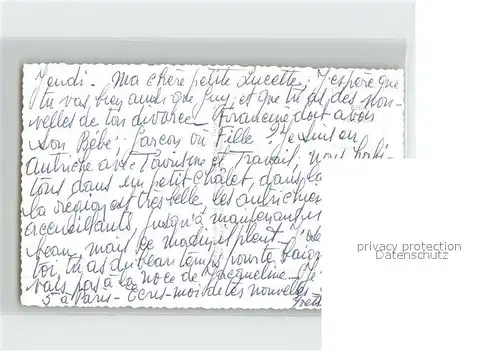 Jeudi. Ma chère petite Lucette. J'espère que
tu vas bien ainsi que Guy, et que tu as des nou-
velles de ton divorce. Francine doit avoir
son Bébé; garçon ou Fille? Je suis en
autriche avec Tourisme et Travail, nous habi-
tons dans un petit châlet, dans
la région est très belle, les autrichiens
accueillants, jusqu'à maintenant
beau, mais ce matin il pleut.
toi, tu as du beau temps pour te baig
vais pas à la noce de Jacqueline.
5 à Paris - Écris-moi de tes nouvelles.
privacy protection
Datenschutz